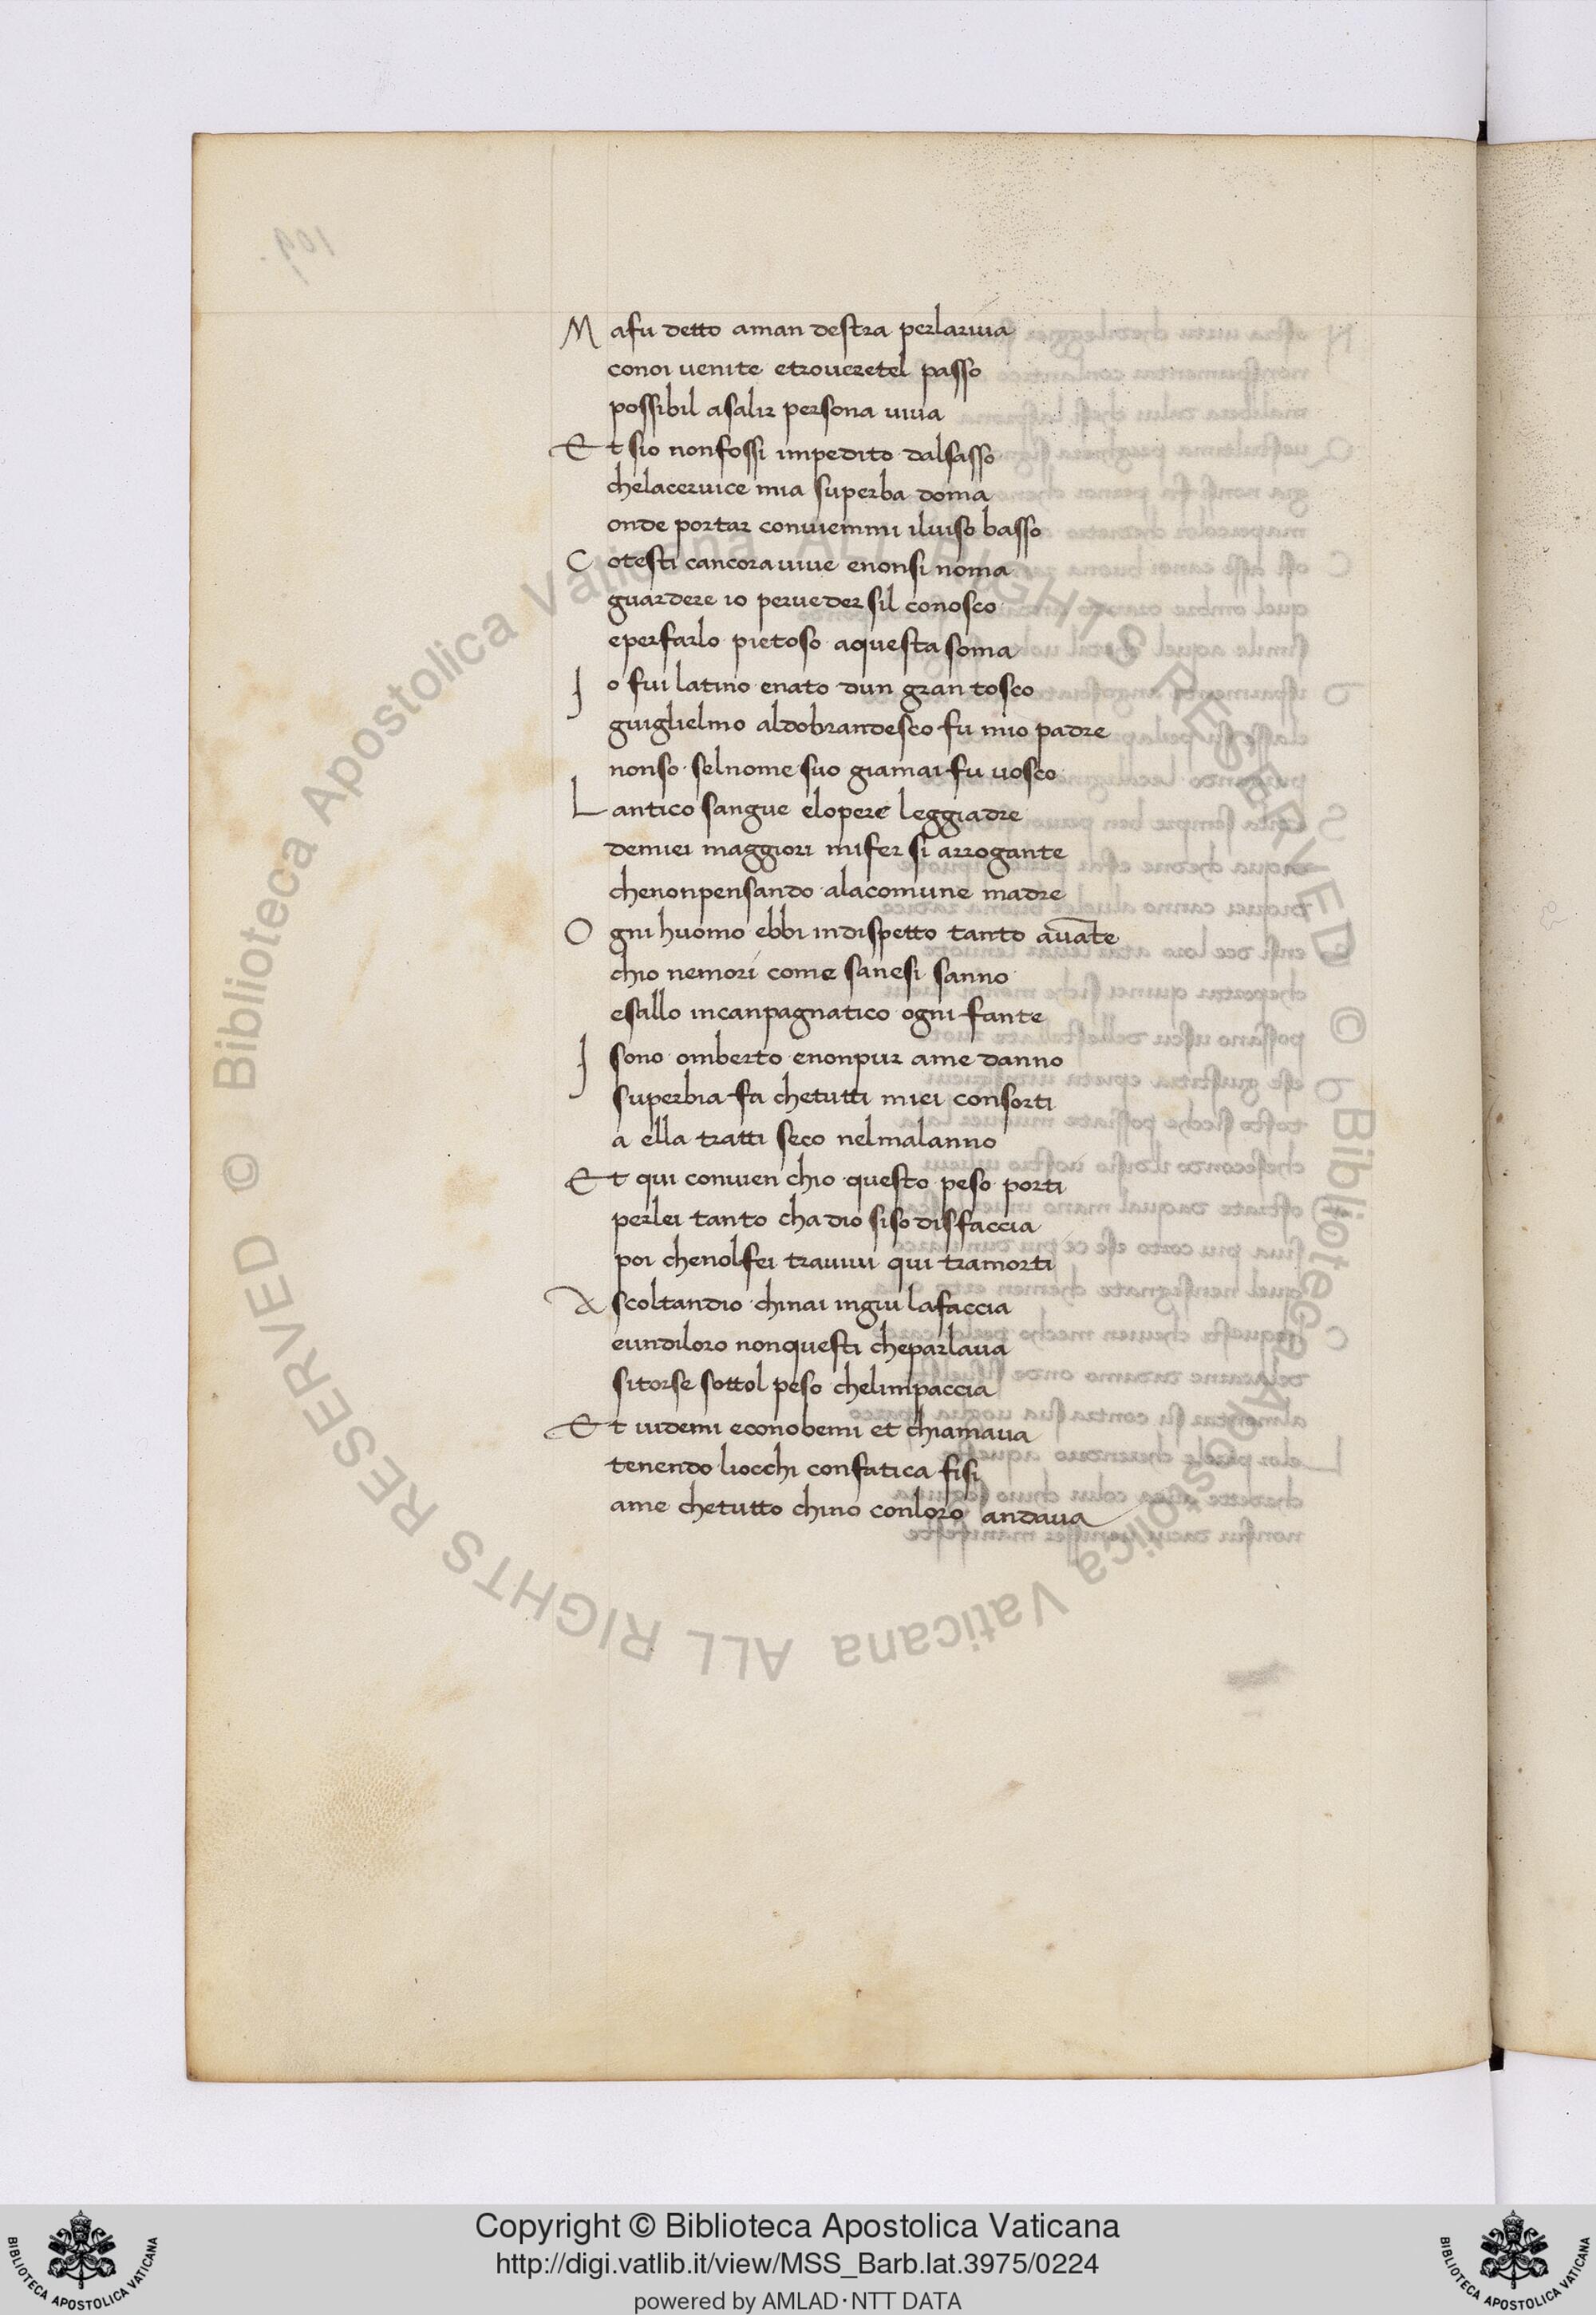 M afu detto aman destra perlariua
conoi uenite etroueretel passo
possibil asalir persona uiua
E t sio nonfossi impedito dalsasso
chelaceruice mia superba doma
onde portar conuiemmi iluiso basso
C otesti cancora uiue enonsi noma
guardere io perueder sil conosco
eperfarlo pietoso aquesta soma
I o fui latino enato dun gran tosco
guiglielmo aldobrandesco fu mio padre
nonso selnome suo giamai fu uosco
L antico sangue elopere leggiadre
demiei maggiori mifer si arrogante
chenonpensando alacomune madre
O gni huomo ebbi indispetto tanto auāte
chio nemori come sanesi sanno
esallo incanpagnatico ogni fante
I sono omberto enonpur ame danno
superbia fa chetutti miei consorti
a ella tratti seco nelmalanno
E t qui conuien chio questo peso porti
perlei tanto cha dio siso disfaccia
poi chenolfei trauiui qui tramorti
A scoltandio chinai ingiu lafaccia
eundiloro nonquesti cheparlaua
sitorse sottol peso chelimpaccia
E t uidemi econobemi et chiamaua
tenendo liocchi confatica fisi
ame chetutto chino conloro andaua
© Biblioteca Apostolica Vaticana ALL RIGHTS RESERVED © Biblioteca Apostolica Vaticana ALL RIGHTS RESERVED
Copyright © Biblioteca Apostolica Vaticana
http://digi.vatlib.it/view/MSS_Barb.lat.3975/0224
powered by AMLAD·NTT DATA
BIBLIOTECA APOSTOLICA VATICANA
BIBLIOTECA APOSTOLICA VATICANA